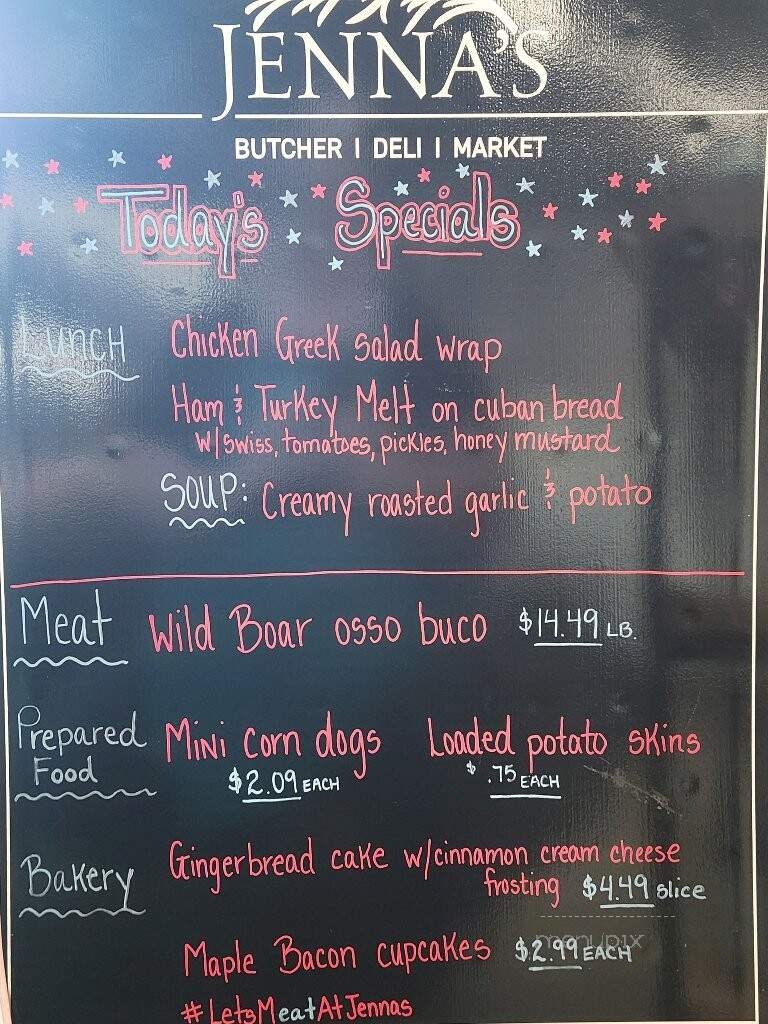 JENNA'S
BUTCHER | DELI | MARKET
Today's Specials
LUNCH Chicken Greek salad wrap
Ham & Turkey Melt on cuban bread
w/swiss, tomatoes, pickles, honey mustard
SOUP: Creamy roasted garlic & potato
Meat Wild Boar osso buco $14.49 LB.
Prepared Food
Mini corn dogs Loaded potato skins
$2.09 EACH $.75 EACH
Bakery Gingerbread cake w/cinnamon cream cheese
frosting $4.49 slice
menupix
Maple Bacon cupcakes $2.99 EACH
#LetsMeatAtJennas